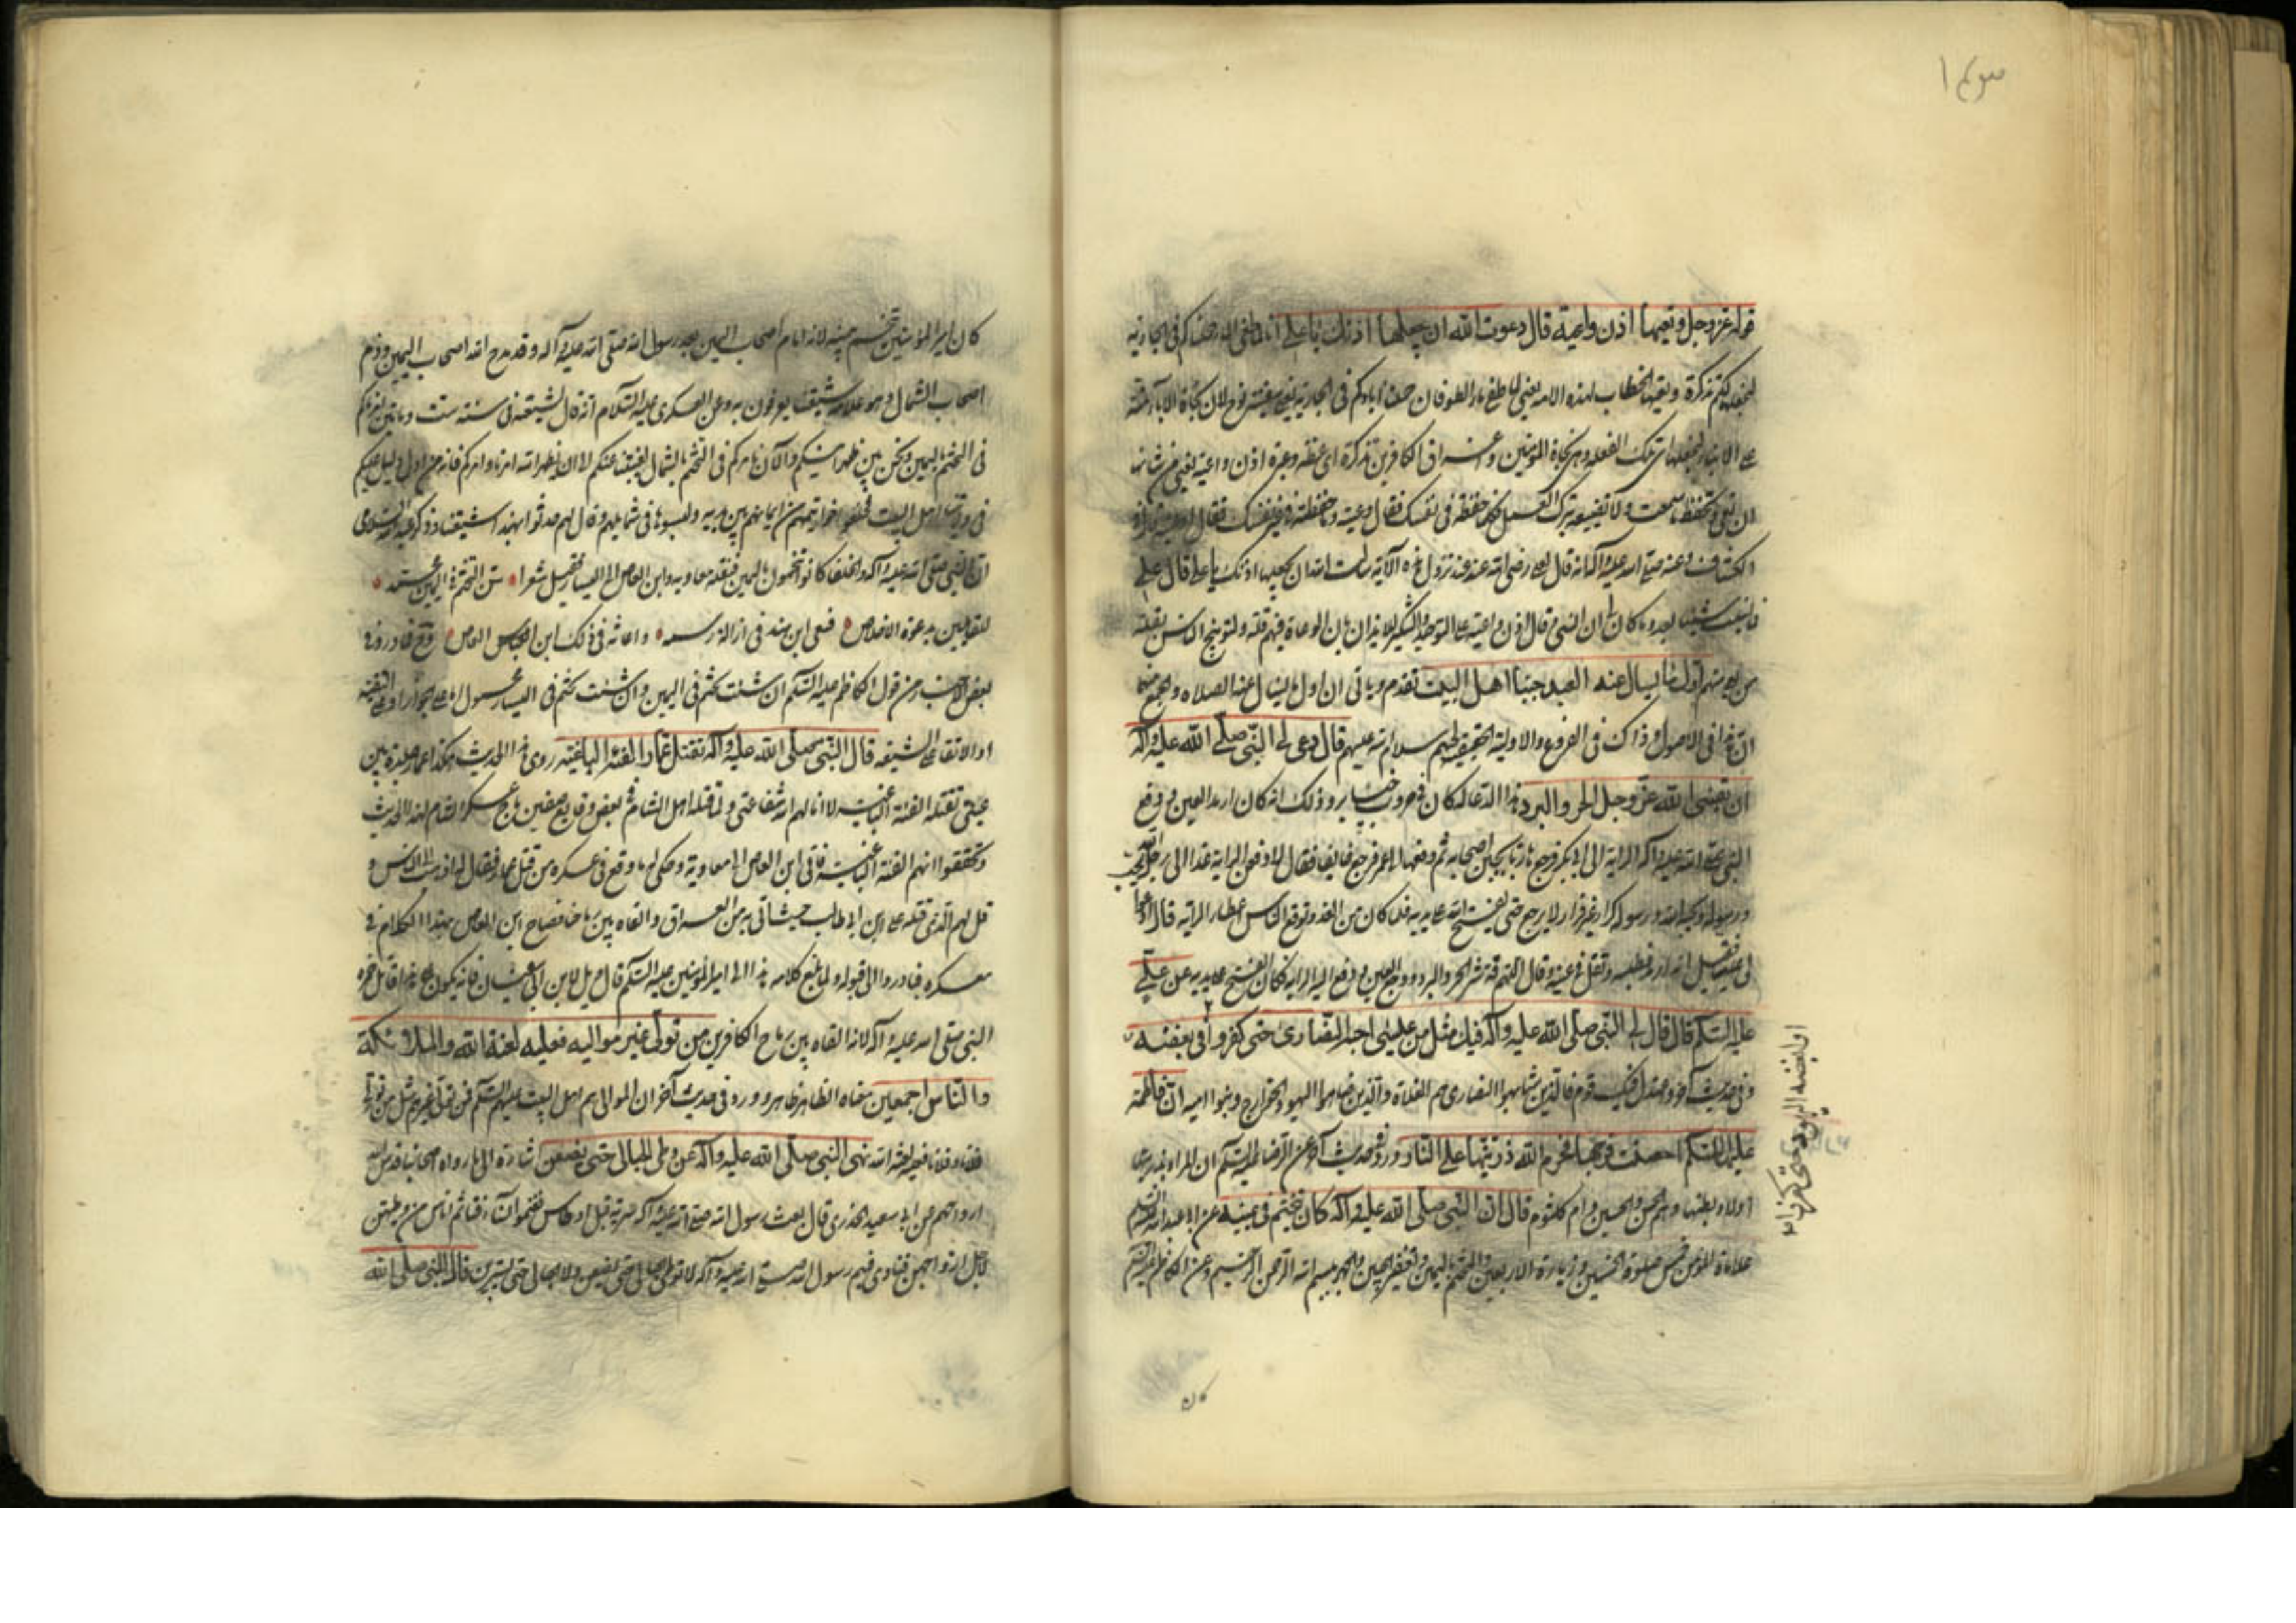 قوله عز وجل وتعيها اذن واعية قال دعوت الله ان يجعلها اذنك يا علي انا لما طغى الماء حملناكم في الجارية
لنجعلها لكم تذكرة وتعيها الخطاب لهذه الامة يعني لما طغى ماء الطوفان حملنا اباءكم في الجارية يعني سفينة نوح لان نجاة الآباء منة
على الابناء لنجعلها اي تلك الفعلة وهي نجاة المؤمنين واغراق الكافرين تذكرة اي عظة وعبرة اذن واعية يعني من شانها
ان تعي وتحفظ ما سمعت ولا تضيعه بترك العمل فكلما حفظته في نفسك فقال وعيته وما حفظته في غير نفسك فقال اوعيته
الكشاف وعنه صلى الله عليه وآله انه قال لعلي رضي الله عنه عند نزول هذه الآية سالت الله ان يجعلها اذنك يا علي قال علي
فما نسيت شيئا بعد وما كان لي ان انسى وقال اذن واعية على التوحيد والتنكير للايذان بان الوعاة فيهم قلة ولتوبيخ الناس بقلة
من يعي منهم اول ما يسال عنه العبد حبنا اهل البيت تقدم وياتي ان اول ما يسال عنه الصلاة والجمع
ان هذا في الاصول وذاك في الفروع والاولية الحقيقية لحبهم سلام الله عليهم قال دعى لي النبي صلى الله عليه وآله
ان يقيني الله عز وجل الحر والبرد هذا الدعا له كان في حروب خيبر وذلك انه كان ارمد العين فدفع
النبي صلى الله عليه وآله الراية الى ابي بكر فرجع هاربا يجبن اصحابه ثم دفعها الى عمر فرجع خائفا فقال لادفعن الراية غدا الى رجل يحب الله
ورسوله ويحبه الله ورسوله كرار غير فرار لا يرجع حتى يفتح الله على يديه فلما كان من الغد وتوقع الناس اعطاء الراية قال ادعوا
لي عليا فقيل انه ارمد فطلبه وتفل في عينيه وقال اللهم قه شر الحر والبرد ووجع العين ودفع اليه الراية فكان الفتح على يديه عن علي
عليه السلام قال قال لي النبي صلى الله عليه وآله فيك مثل من عيسى احبه النصارى حتى كفروا في بغضه
وفي حديث آخر فالذين شابهوا النصارى هم الغلاة والذين ضاهوا اليهود الخوارج وبنوا امية ان فاطمة
عليها السلام احصنت فرجها فحرم الله ذريتها على النار ورد في حديث آخر عن الرضا عليه السلام ان المراد بذريتها
اولاد بطنها وهم الحسن والحسين وام كلثوم قال ان النبي صلى الله عليه وآله كان يتختم في يمينه عن ابي عبد الله عليه السلام
علامة المؤمن خمس صلوة الخمسين وزيارة الاربعين والتختم باليمين وتعفير الجبين والجهر ببسم الله الرحمن الرحيم وعن الكاظم عليه السلام
او ابغضه اليهود حتى كفروا به
كان امير المؤمنين يتختم بيمينه لانه امام اصحاب اليمين بعد رسول الله صلى الله عليه وآله وقد مدح الله اصحاب اليمين وذم
اصحاب الشمال وهو علامة شيعتنا يعرفون به وعن العسكري عليه السلام انه قال لشيعته في سنة ستين ومائتين امرناكم
في التختم باليمين ونحن بين ظهرانيكم والآن نامركم في التختم بالشمال لغيبتنا عنكم الا ان يظهر الله امرنا وامركم فانه من اول دليل عليكم
في ولايتنا اهل البيت فخلعوا خواتيمهم من ايمانهم بين يديه ولبسوها في شمايلهم وقال لهم حدثوا بهذا شيعتنا
ان النبي صلى الله عليه وآله والخلفا كانوا يتختمون باليمين فنقله معاوية وابن العاص الى اليسار فقيل شعرا سن التختم في اليمين محمد
للقايلين بدعوة الاخلاص فسعى ابن هند في ازالة رسمه واعانه في ذلك ابن العاص
بعض الاخبار من قول الكاظم عليه السلام ان شئت تختم في اليمين وان شئت تختم في اليسار محمول اما على الجواز او على التقية
او الاتقا على الشيعة قال النبي صلى الله عليه وآله تقتل عمارا الفئة الباغية روي هذا الحديث هكذا عمار جلدة بين
عيني تقتله الفئة الباغية لا انالهم الله شفاعتي ولما قتله اهل الشام في بعض وقايع صفين هاج عسكر الشام لهذا الحديث
وتحققوا انهم الفئة الباغية فاتى ابن العاص الى معاوية وحكى له ما وقع في عسكره من قتل عمار فقال له اذهب الى الناس و
قل لهم الذي قتله علي ابن ابي طالب حيث اتى به من العراق والقاه بين رماحنا فصاح ابن العاص بهذا الكلام في
معسكره فبادروا الى قبوله ولما بلغ كلامه هذا الى امير المؤمنين عليه السلام قال ويل لابن ابي سفيان فانه يكون على هذا قاتل حمزة
النبي صلى الله عليه وآله لانه القاه بين رماح الكافرين من تولى غير مواليه فعليه لعنة الله والملائكة
والناس اجمعين معناه الظاهر ظاهر وورد في حديث آخر ان الموالي هم اهل البيت عليهم السلام فمن تولى غيرهم مثل من تولى
فلانا وفلانا فعليه لعنة الله نهى النبي صلى الله عليه وآله عن وطى الحبالى حتى يضعن اشارة الى ما رواه اصحابنا قدس الله
ارواحهم عن ابي سعيد الخدري قال بعث رسول الله صلى الله عليه وآله سرية قبل اوطاس فغنموا نساء فتاثم اناس من وطئهن
لاجل ازواجهن فنادى فيهم رسول الله صلى الله عليه وآله لا توطى الحبالى حتى يضعن ولا الحيالى حتى يستبرين قال النبي صلى الله